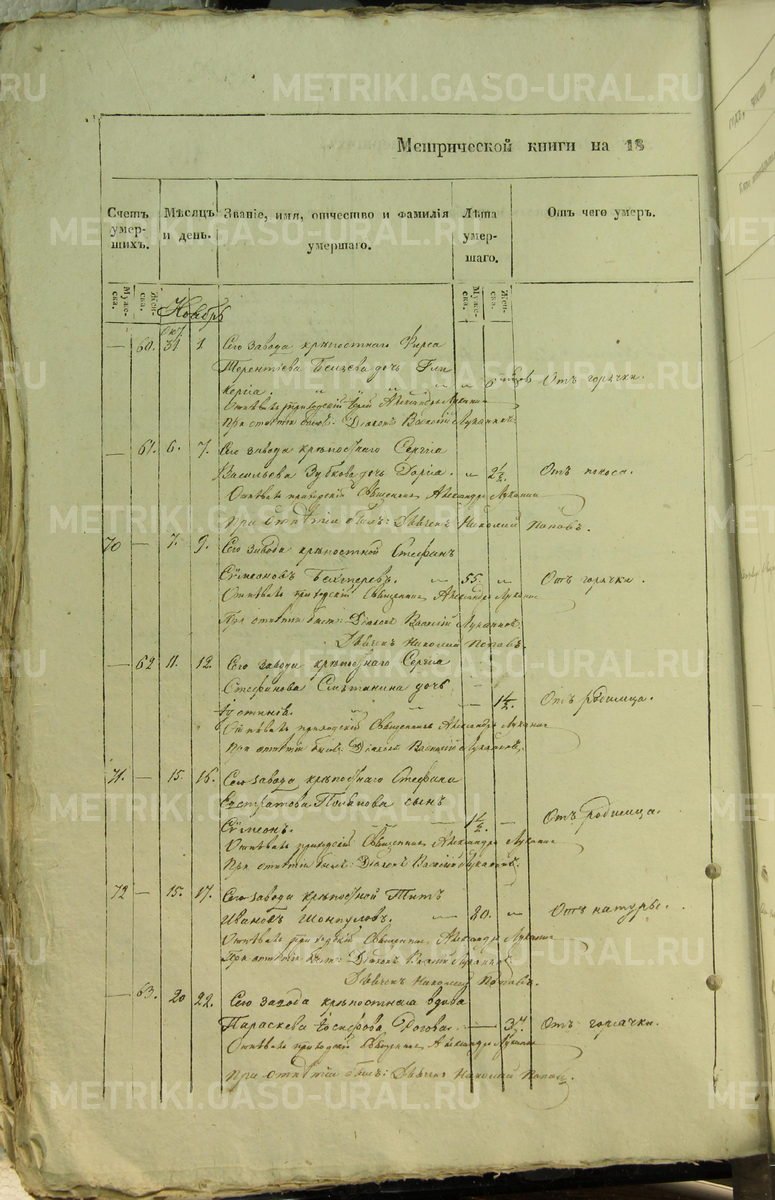 Метрической книги на 18
Счетъ умер- шихъ.
Мѣсяцъ и день.
Званіе, имя, отчество и фамилія умершаго.
Лѣта умер- шаго.
Отъ чего умеръ.
Муже- ска.
Жен- ска.
Муже- ска.
Жен- ска.
Ноябрь
— 60. 31 1. Сего завода крѣпостнаго Фирса
Терентьева дочь
6 Отъ горячки.
Отпѣвалъ приходскій
При отпѣтіи былъ: Діаконъ Василій Луканинъ.
— 61. 6. 7. Сего завода крѣпостнаго Сергія
Васильева Зубкова дочь — 2½. Отъ поноса.
Отпѣвалъ приходскій Священникъ Александръ Луканинъ
При отпѣтіи былъ: Дьячекъ Николай Поповъ.
70 — 7. 9. Сего завода крѣпостной Стефанъ
Сѵмеоновъ Бехтеревъ. — 55. — Отъ горячки.
Отпѣвалъ приходскій Священникъ Александръ Луканинъ
При отпѣтіи былъ: Діаконъ Василій Луканинъ.
Дьячекъ Николай Поповъ.
— 62 11. 12. Сего завода крѣпостнаго Сергія
Стефанова Сметанина дочь
Іустинія. — — 1½. Отъ родимца.
Отпѣвалъ приходскій Священникъ Александръ Луканинъ
При отпѣтіи былъ: Діаконъ Василій Луканинъ.
71. — 15. 16. Сего завода крѣпостнаго Стефана
Евстратова сынъ
Сѵмеонъ. — 1½. — Отъ родимца.
Отпѣвалъ приходскій Священникъ Александръ Луканинъ
При отпѣтіи былъ: Діаконъ Василій Луканинъ.
72 — 15. 17. Сего завода крѣпостной Титъ
Ивановъ — 80. — Отъ натуры.
Отпѣвалъ приходскій Священникъ Александръ Луканинъ
При отпѣтіи былъ: Діаконъ Василій Луканинъ
Дьячекъ Николай Поповъ.
— 63. 20 22. Сего завода крѣпостная вдова
Параскева Іосифова — 37. Отъ горячки.
Отпѣвалъ приходскій Священникъ Александръ Луканинъ
При отпѣтіи былъ: Дьячекъ Николай Поповъ.
METRIKI.GASO-URAL.RU